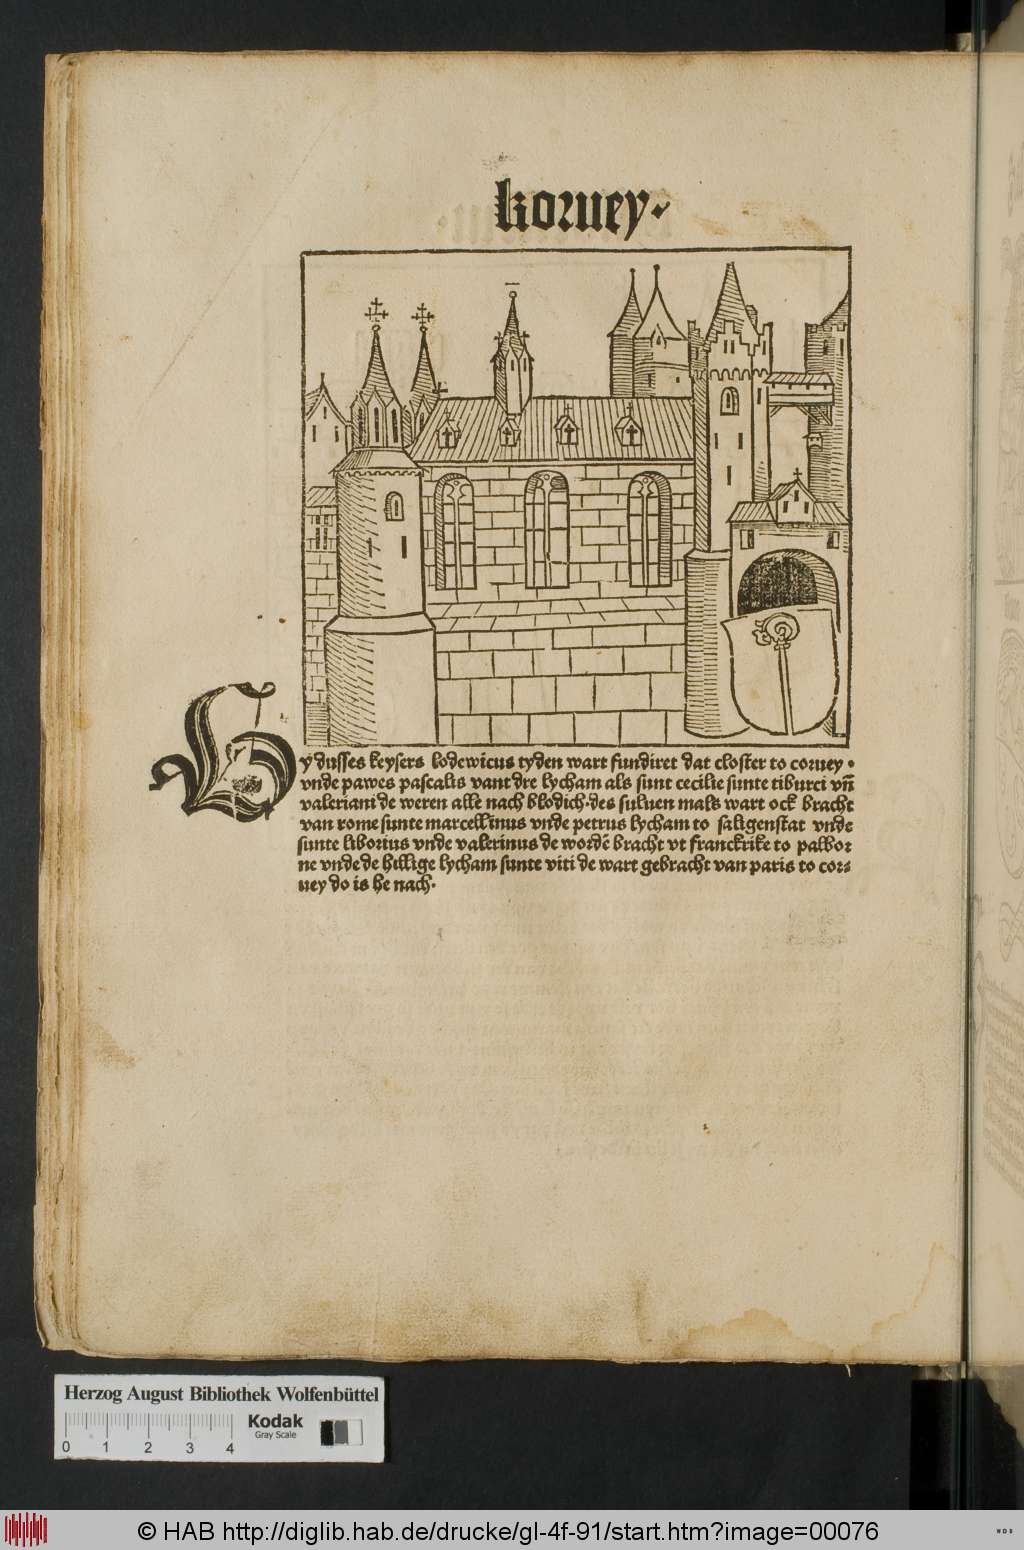 koruey.
By dusses keysers lodewicus tyden wart fundiret dat closter to coruey.
vnde pawes pascalis vant dre lycham als sunt cecilie sunte tiburci vn̄
valeriani de weren alle nach blodich. des suluen mals wart ock bracht
van rome sunte marcellinus vnde petrus lycham to saligenstat vnde
sunte liborius vnde valerinus de wordē bracht vt franckrike to palbor
ne vnde de hillige lycham sunte viti de wart gebracht van paris to cor⸗
uey do is he nach.
Herzog August Bibliothek Wolfenbüttel
Kodak
Gray Scale
0 1 2 3 4
© HAB http://diglib.hab.de/drucke/gl-4f-91/start.htm?image=00076
WDB